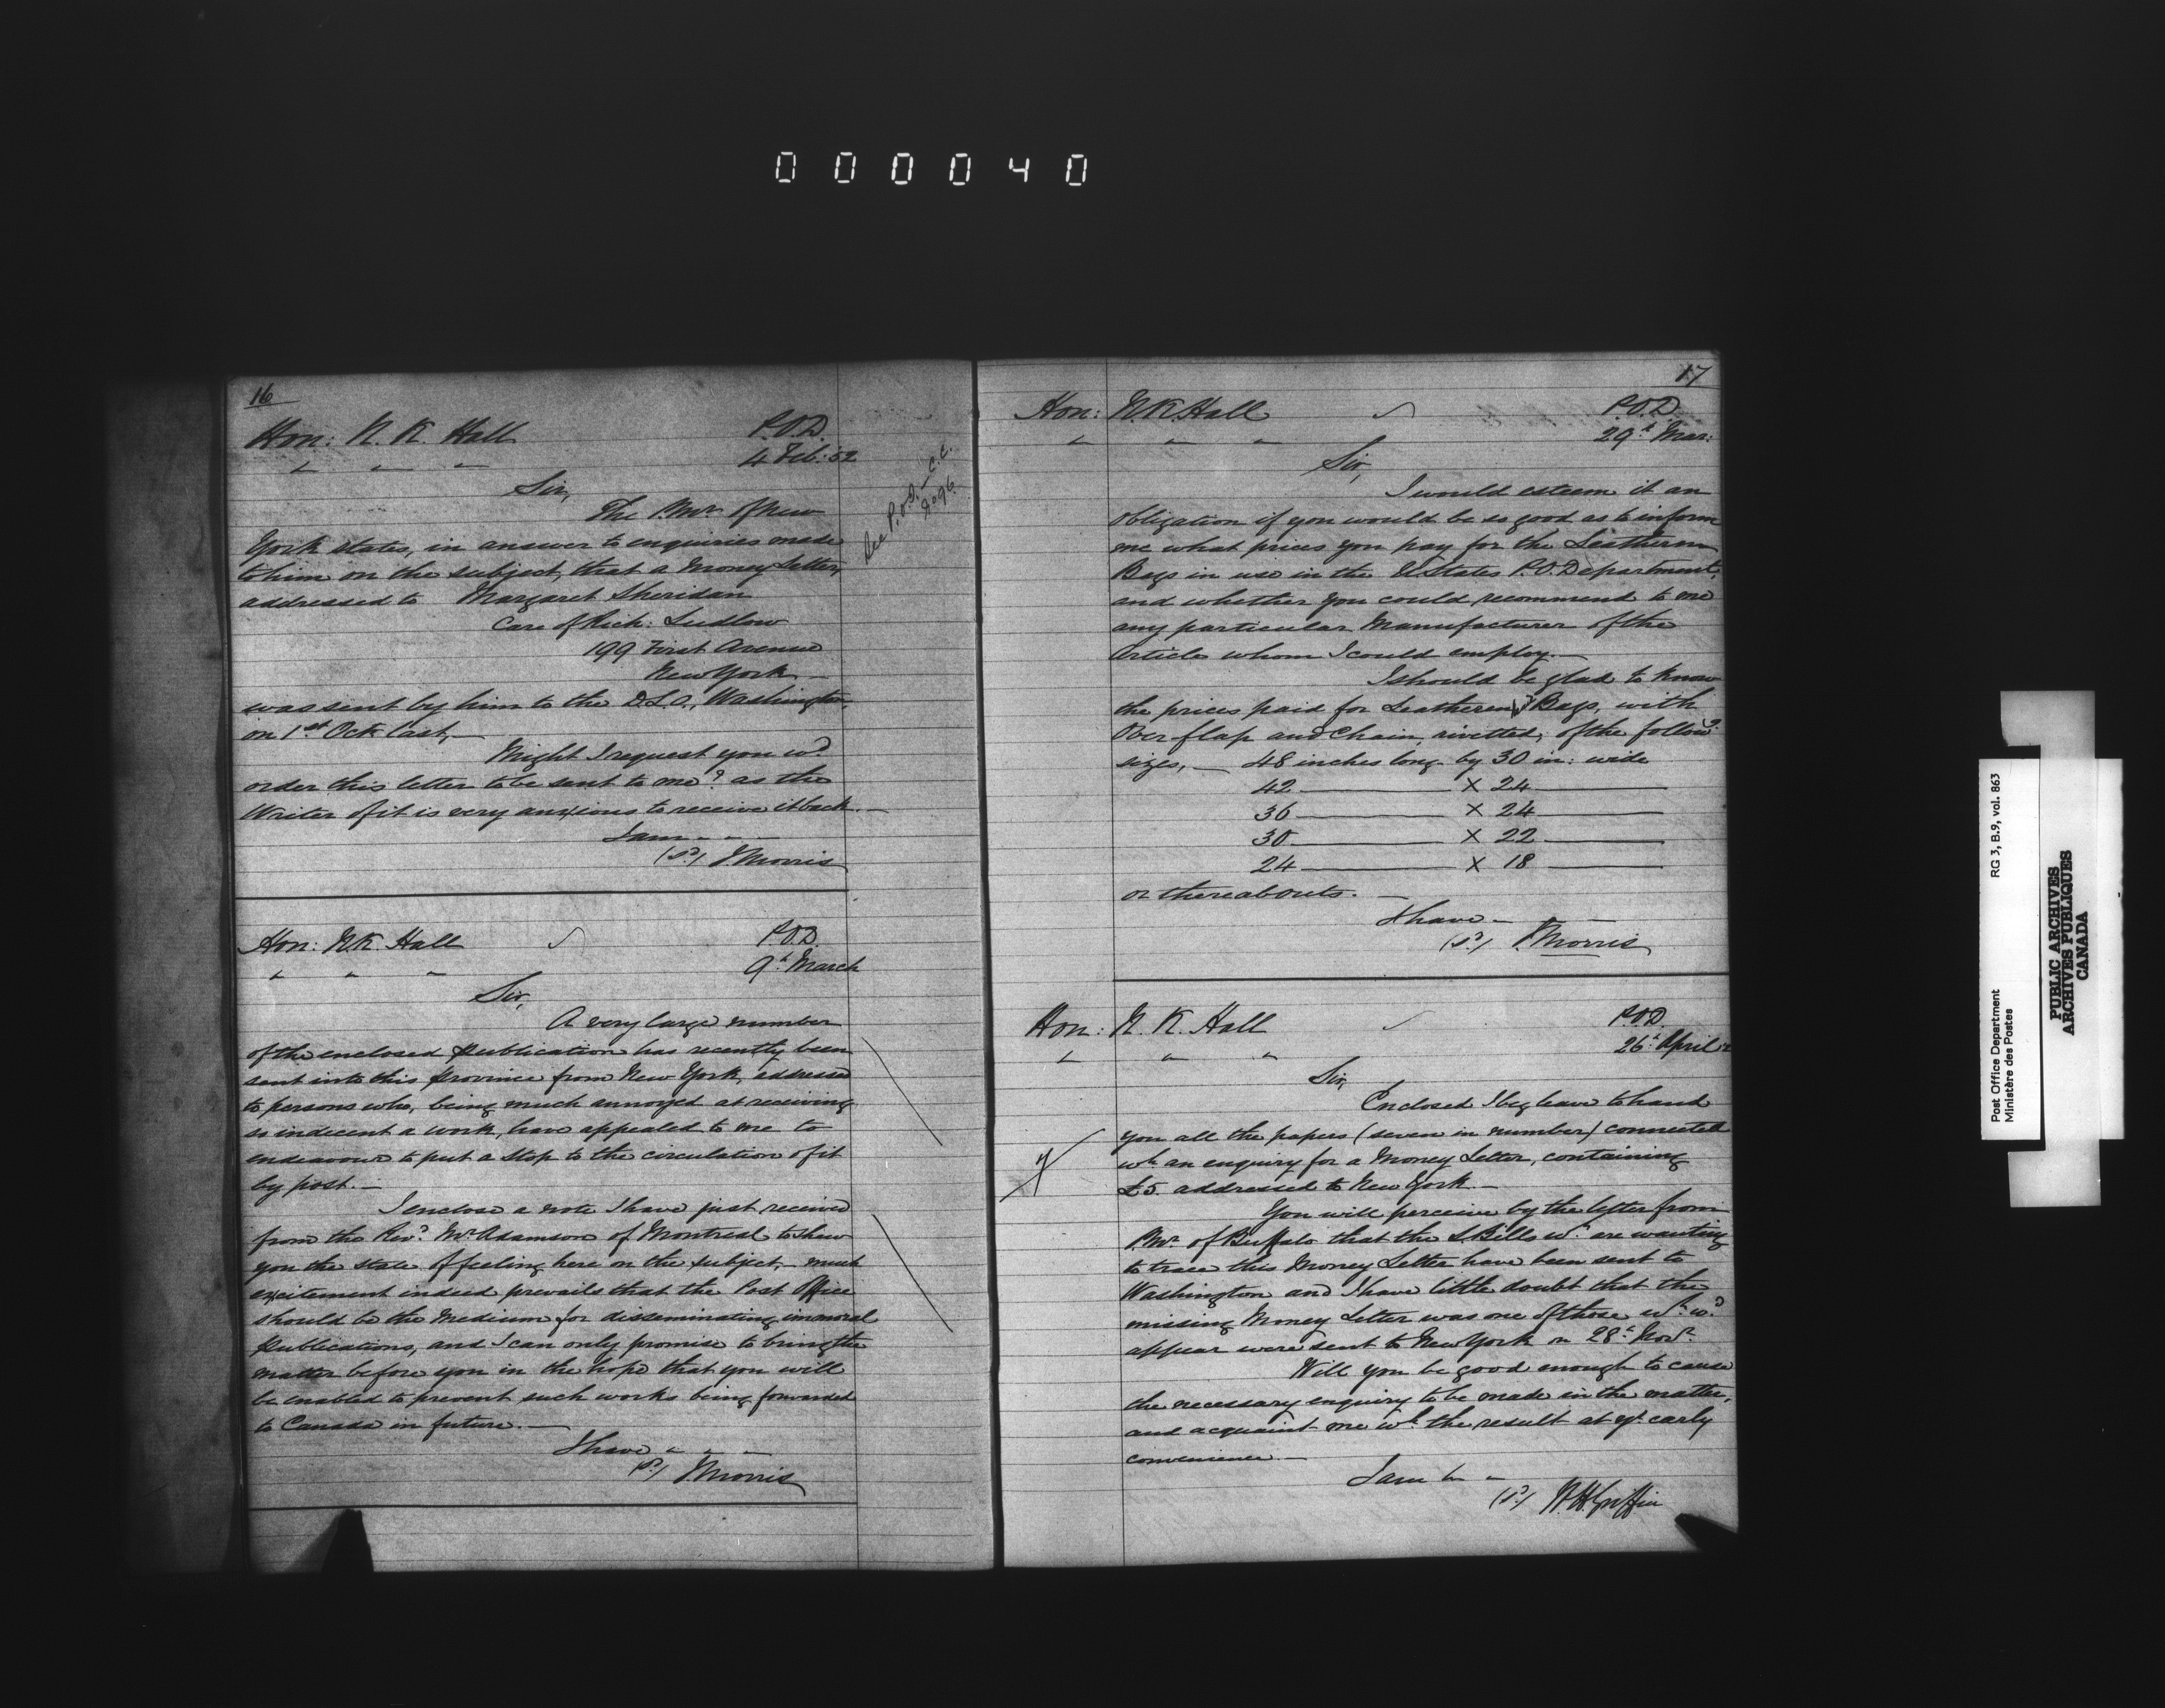 000040
16
Hon: N. K. Hall P.O.D.
" " " 4 Feb: 52
Sir,
The P.Mr. of New
York states, in answer to enquiries made
to him on the subject, that a Money Letter,
addressed to Margaret Sheridan
Care of Rich: Ludlow
199 First Avenue
New York —
was sent by him to the D.L.O., Washington,
on 1st Octr. last, —
Might I request you wd.
order this letter to be sent to me? as the
Writer of it is very anxious to receive it back. —
I am " " —
(Sd.) J Morris
See P.O.D. — C.C.
Hon: N.K. Hall P.O.D.
" " " 9th March
Sir,
A very large number
of the enclosed publication has recently been
sent into this Province from New York, addressed
to persons who, being much annoyed at receiving
so indecent a work, have appealed to me to
endeavour to put a stop to the circulation of it
by post. —
I enclose a note I have just received
from the Revd. Mr. Adamson of Montreal to shew
you the state of feeling here on the subject, — much
excitement indeed prevails that the Post Office
should be the Medium for disseminating immoral
publications, and I can only promise to bring the
matter before you in the hope that you will
be enabled to prevent such works being forwarded
to Canada in future. —
I have " " —
(Sd.) J Morris
17
Hon: N.K. Hall P.O.D.
" " " 29th Mar:
Sir,
I would esteem it an
obligation if you would be so good as to inform
me what prices you pay for the Leathern
Bags in use in the U States P.O. Department,
and whether you could recommend to me
any particular Manufacturer of the
Article whom I could employ. —
I should be glad to know
the prices paid for Leathern Bags, with
Over-flap and Chain, rivetted, of the followg.
sizes, — 48 inches long by 30 in: wide
42 — X 24 —
36 — X 24 —
30 — X 22 —
24 — X 18 —
or thereabouts. —
I have " —
(Sd.) J Morris
Hon: N. K. Hall P.O.D.
" " " 26th April 52
Sir,
Enclosed I beg leave to hand
you all the papers (seven in number) connected
wh. an enquiry for a Money Letter, containing
£5. addressed to New York. —
7
You will perceive by the letter from
P.Mr. of Buffalo that the L Bills wh. are wanting
to trace this Money Letter have been sent to
Washington and I have little doubt that the
missing Money Letter was one of those wh. wd.
appear were sent to New York on 28th Novr.
Will you be good enough to cause
the necessary enquiry to be made in the matter,
and acquaint me wh. the result at yr. early
convenience. —
I am "
(Sd.) W. H. Griffin
Post Office Department RG 3, B.9, vol. 863
Ministère des Postes
PUBLIC ARCHIVES
ARCHIVES PUBLIQUES
CANADA